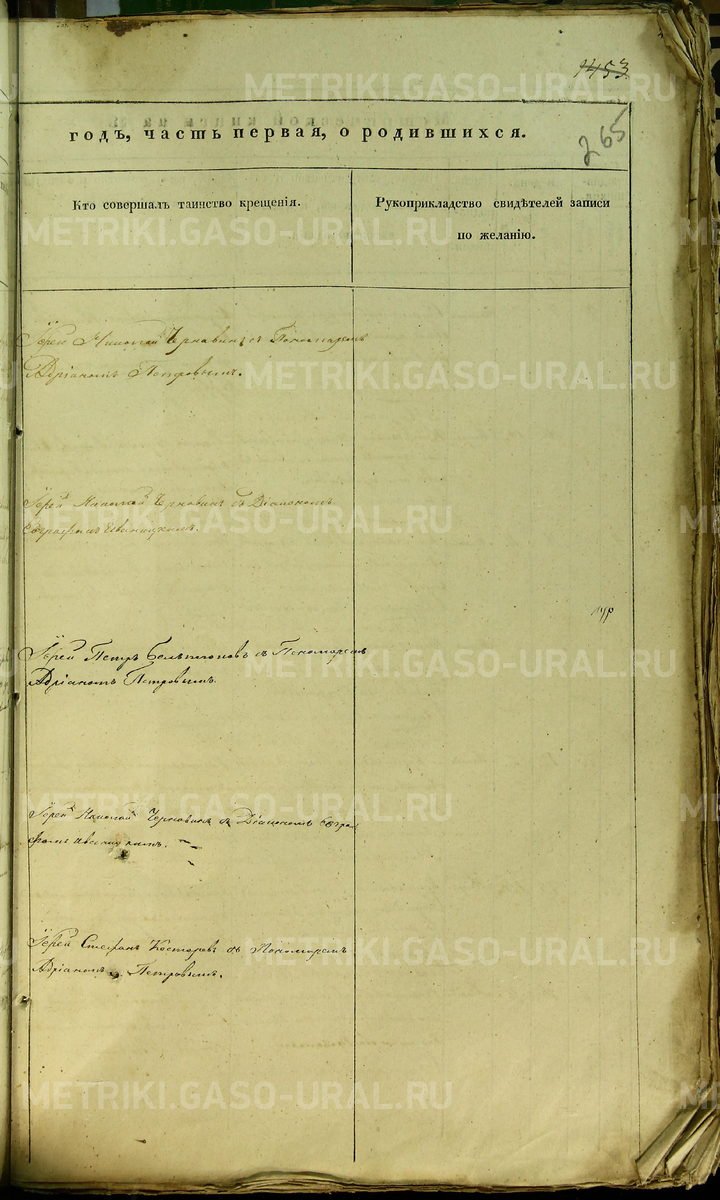 1453
265
годъ, часть первая, о родившихся.
Кто совершалъ таинство крещенія.
Рукоприкладство свидѣтелей записи
по желанію.
Іерей Николай Чернавинъ съ Пономаремъ
Адріаномъ Петровымъ.
Іерей Николай Чернавинъ съ Діакономъ
Іерей Петръ съ Пономаремъ
Адріаномъ Петровымъ.
Іерей Николай Чернавинъ съ Діакономъ
Іерей Стефанъ Костаревъ съ Пономаремъ
Адріаномъ Петровымъ.
METRIKI.GASO-URAL.RU